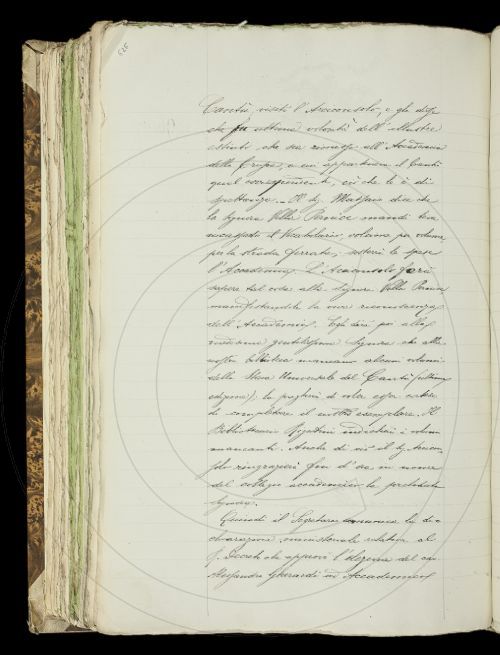 626
Cantù, visitò l'Arciconsolo, e gli disse
che fu ultima volontà dell'illustre
estinto che sia rimesso all'Accademia
della Crusca, a cui apparteneva il Cantù
qual corrispondente, ciò che le è di
spettanza. - Il Sig. dice che
la Signora Villa Pernice mandi ben
incassato il Vocabolario, volume per volume,
per la strada ferrata, sosterrà le spese
l'Accademia. L'Arciconsolo farà
sapere tal cosa alla Signora Villa Pernice
manifestandole la viva riconoscenza
dell'Accademia. Egli dirà poi alla
medesima gentilissima Signora che alla
nostra biblioteca mancano alcuni volumi
della Storia Universale del Cantù (ultima
edizione); la pregherà di voler essa
di completare il nostro esemplare. Il
Bibliotecario Rigutini indicherà i volumi
mancanti. Anche di ciò il Sig. Arcicon-
solo ringrazierà fin d'ora in nome
del collegio accademico la prelodata
Signora.
Quindi il Segretario comunica la di-
chiarazione ministeriale relativa al
R. Decreto che approva l'elezione del cav.
Alessandro Gherardi in Accademico